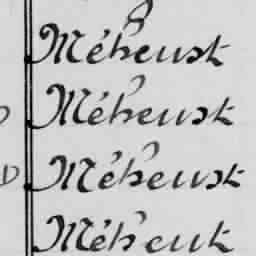 Méheust
Méheust
D Méheust
Méheut